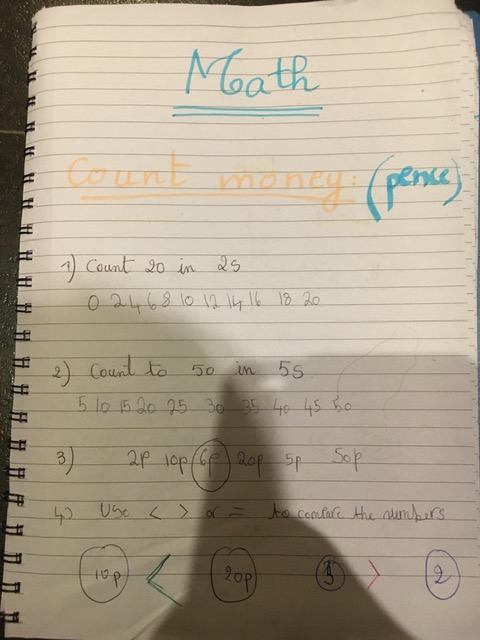 Math
Count money: (pence)
1) Count 20 in 2s
0 2 4 6 8 10 12 14 16 18 20
2) Count to 50 in 5s
5 10 15 20 25 30 35 40 45 50
3) 2p 10p 6p 20p 5p 50p
4) Use < > or = to compare the numbers
10p < 20p 5 > 2